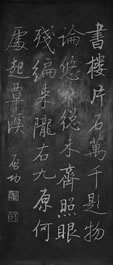 書樓片石萬千題物
論悠々總未齊照眼
殘編来隴右九原何
處起覃溪 啟功